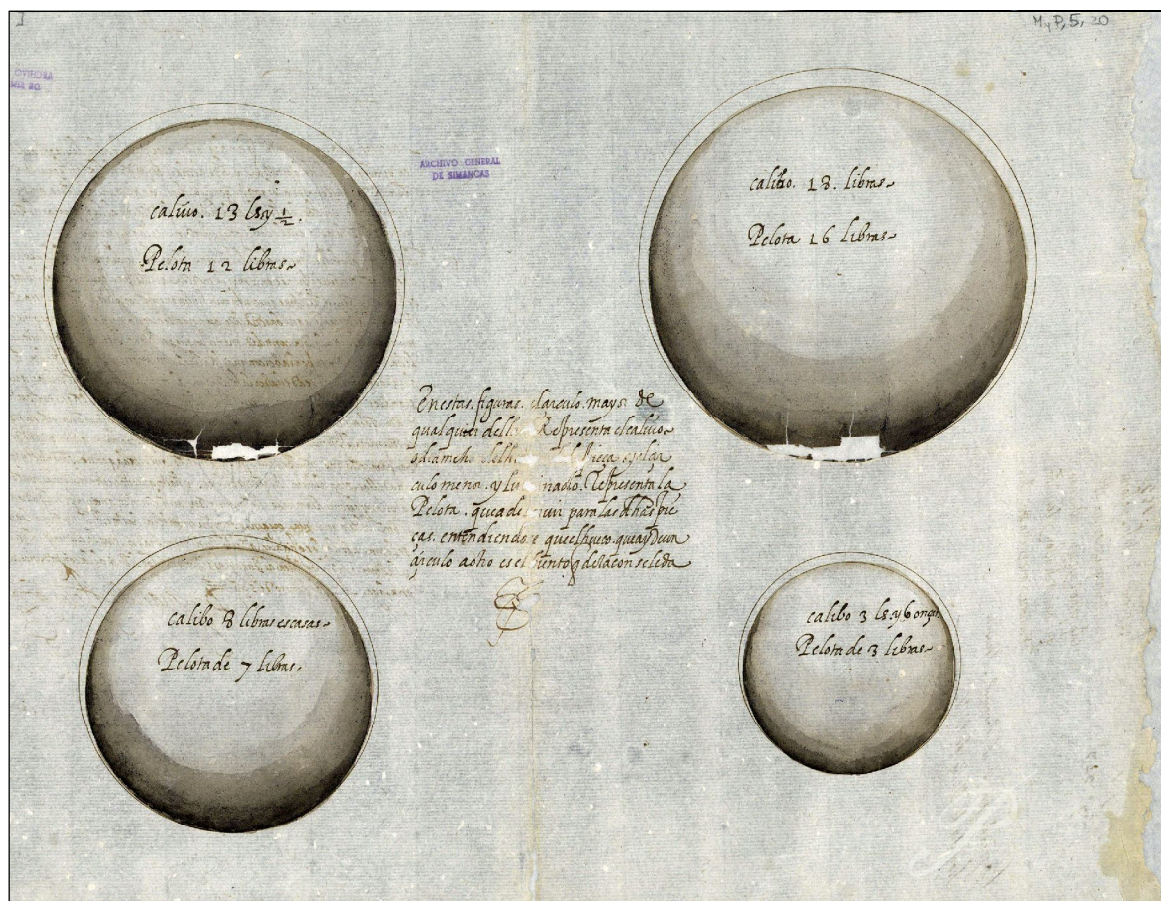 I
M y P, 5, 20
ARCHIVO GENERAL
DE SIMANCAS
caliuo. 13 ls. y 1/2.
Pelota 12 libras
calibo. 18. libras
Pelota 16 libras
En estas. figuras. el circulo. mayor de
qualquier dell Representa el caliuo
o el ancho del pieça. y el cir
culo menor. y luminado. Representa la
Pelota. que a de para las dhas pie
ças. entendiendo que el hueco. que ay De un
circulo a otro es el viento q de la con se le da
calibo 8 libras escasas
Pelota de 7 libras.
calibo 3 ls. y 6 onças
Pelota de 3 libras